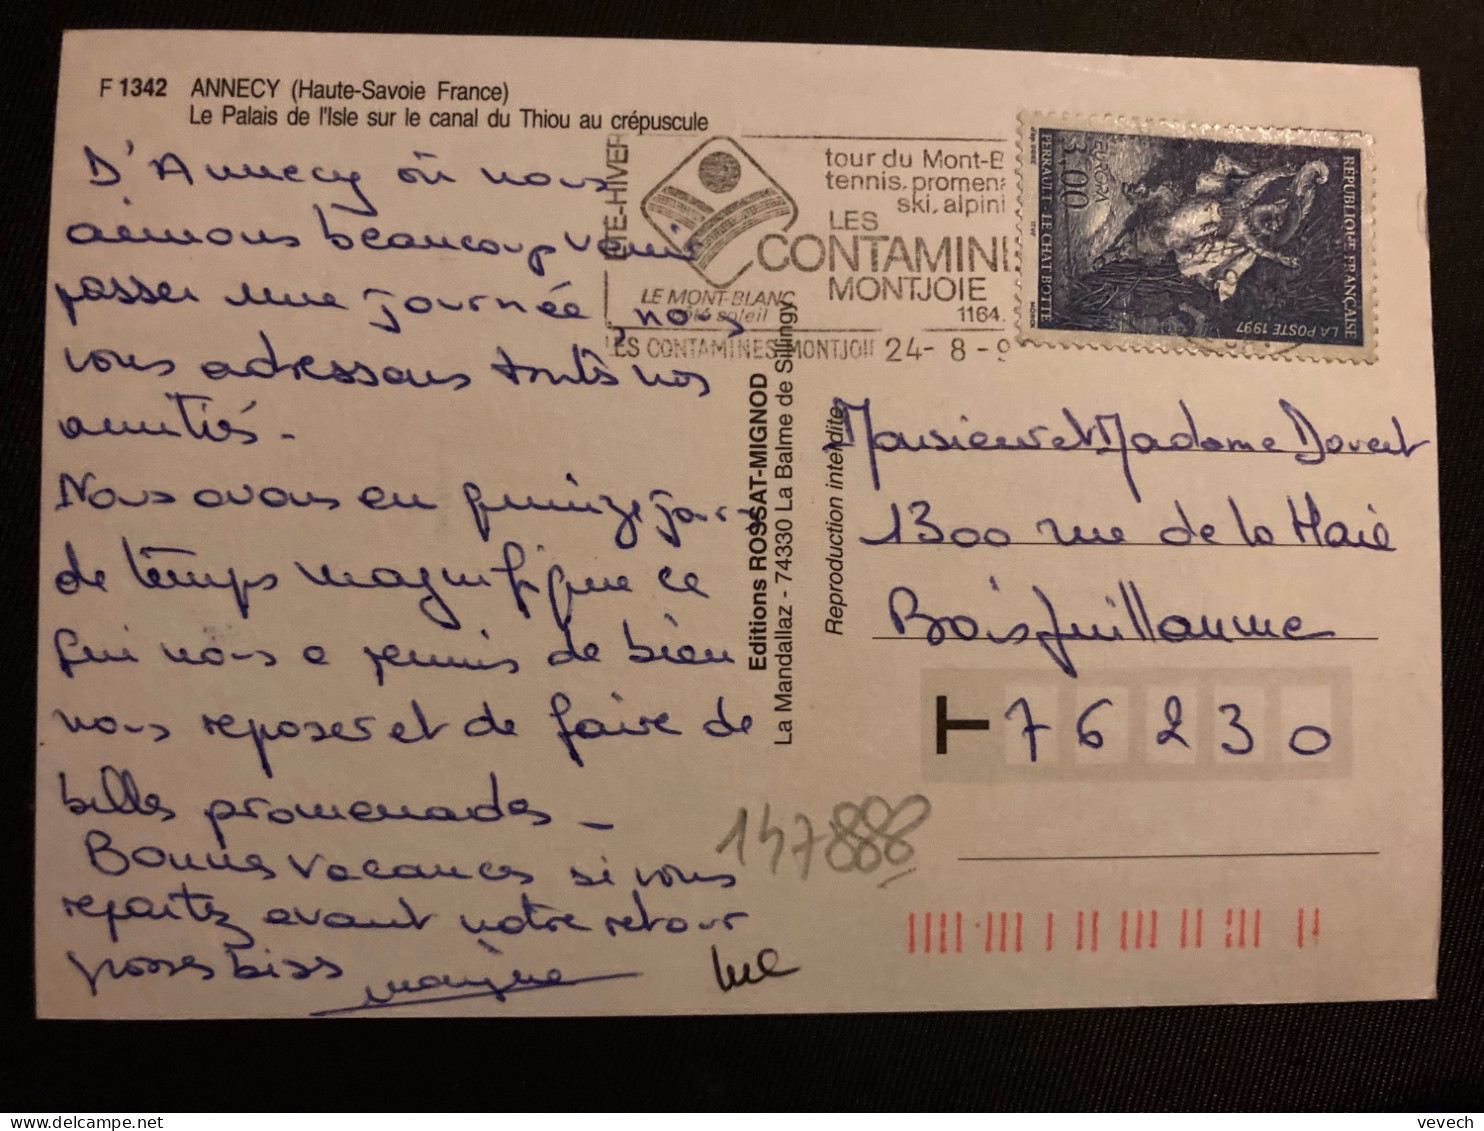 F 1342 ANNECY (Haute-Savoie France)
Le Palais de l'Isle sur le canal du Thiou au crépuscule
D'Annecy où nous
aimons beaucoup venir
passer une journée, nous
vous adressons toutes nos
amitiés.
Nous avons eu quinze jours
de temps magnifique ce
qui nous a permis de bien
nous reposer et de faire de
belles promenades_
Bonnes vacances si vous
repartez avant notre retour
grosses bises
ETE-HIVER
LE MONT-BLANC
côté soleil
tour du Mont-B
tennis. promena
ski, alpini
LES
CONTAMINE
MONTJOIE
1164.
LES CONTAMINES MONTJOIE 24- 8 - 9
REPUBLIQUE FRANÇAISE
LA POSTE 1997
EUROPA
3,00
PERRAULT - LE CHAT BOTTE
Editions ROSSAT-MIGNOD
La Mandallaz - 74330 La Balme de Sillingy
Reproduction interdite
Monsieur et Madame
1300 rue de la Haie
Boisguillaume
T 76230
147888
vevech